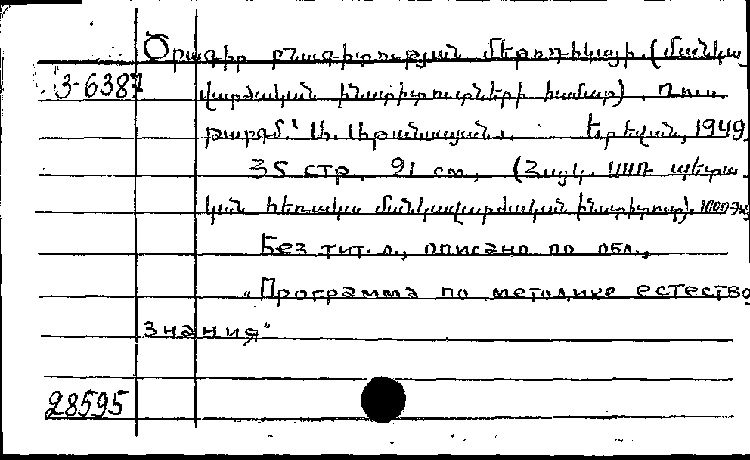 Ծրագիր բնագիտության մեթոդիկայի (մանկա
3-6387
վարժական ինստիտուտների համար). Ռուս.
թարգմ.՝ Երևան, 1949.
35 стр. 21 см, (Հայկ. ՍՍՌ պետա
կան հեռակա մանկավարժական ինստիտուտ).
Без тит. л., описано по обл.,
"Программа по методике естество
знания"
28595